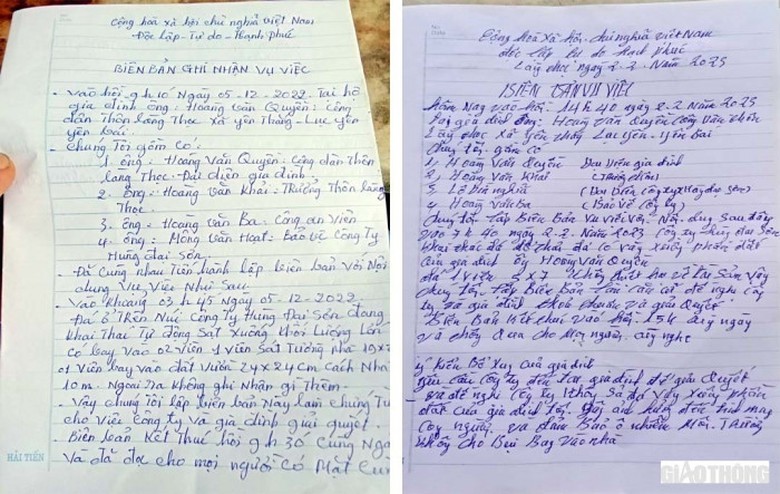 Cộng hòa xã hội chủ nghĩa Việt Nam
Độc lập - Tự do - Hạnh phúc
BIÊN BẢN GHI NHẬN VỤ VIỆC
- Vào hồi 9h10 Ngày 05-12-2022. Tại hộ
gia đình ông: Hoàng Văn Quyền: công
dân Thôn làng Thọc xã yên Thắng - Lục yên
yên bái.
- Chúng Tôi gồm có:
1. ông: Hoàng Văn Quyền: công dân Thôn
làng Thọc. Đại diện gia đình.
2. ông: Hoàng Văn Khải: Trưởng Thôn làng
Thọc.
3. ông: Hoàng Văn Ba: công an viên
4. ông: Mông Văn Hoạt: Bảo vệ công Ty
Hùng đại sơn.
- Đã cùng nhau Tiến hành lập biên bản với Nội
dung Vụ Việc Như Sau.
- Vào khoảng 03h45 Ngày 05-12-2022.
Đá ở Trên Núi công Ty Hùng Đại Sơn đang
khai Thác Tự động Sạt xuống khối Lượng Lớn
có bay vào 02 viên 1 viên Sát Tường nhà 19x
01 viên bay vào đất vườn 24x24cm cách Nhà
10m. Ngoài ra không ghi Nhận gì Thêm.
- Vậy chúng Tôi lập biên bản này làm chứng Từ
cho Việc công ty và gia đình giải quyết.
- Biên bản kết Thúc hồi 9h30 cùng Ngà
Và đã đọc cho mọi người có Mặt cùn
HẢI TIẾN
Cộng hòa Xã hội chủ nghĩa Việt Nam
độc lập tự do hạnh phúc
ngày 2.2. Năm 2023
BIÊN BẢN VỤ VIỆC
Hôm Nay vào hồi 14h40 ngày 2.2 Năm 2023
Tại gia đình ông: Hoàng Văn Quyền công dân thôn
Làng Thọc xã yên thắng Lục yên - yên bái
chúng tôi gồm có
1, Hoàng Văn Quyền Đại diện gia đình
2, Hoàng Văn Khải (Trưởng thôn)
3, Lê
4, Hoàng Văn Ba (Bảo vệ công ty)
chúng tôi Lập Biên Bản Vụ việc với Nội dung sau đây
vào 7h40 ngày 2.2. Năm 2023 công ty hùng đại sơn
khai thác đá để đá có vây xuống phần đất
của gia đình ông Hoàng Văn Quyền
đá 1 viên 5 x 7
chúng tôi Lập Biên Bản làm căn cứ đề nghị công
ty và gia đình thỏa thuận và giải Quyết
Biên Bản kết thúc vào hồi cùng ngày
và thông qua cho Mọi người cùng nghe
ý kiến Bổ Xung của gia đình
yêu cầu công ty đến gia đình để giải Quyết
và đề nghị công ty không đá vây xuống phần
đất của gia đình tôi. ảnh hưởng đến tính mạng
con người. và đảm Bảo ô nhiễm Môi Trường
không cho Bụi Bay vào nhà
GIAOTHONG